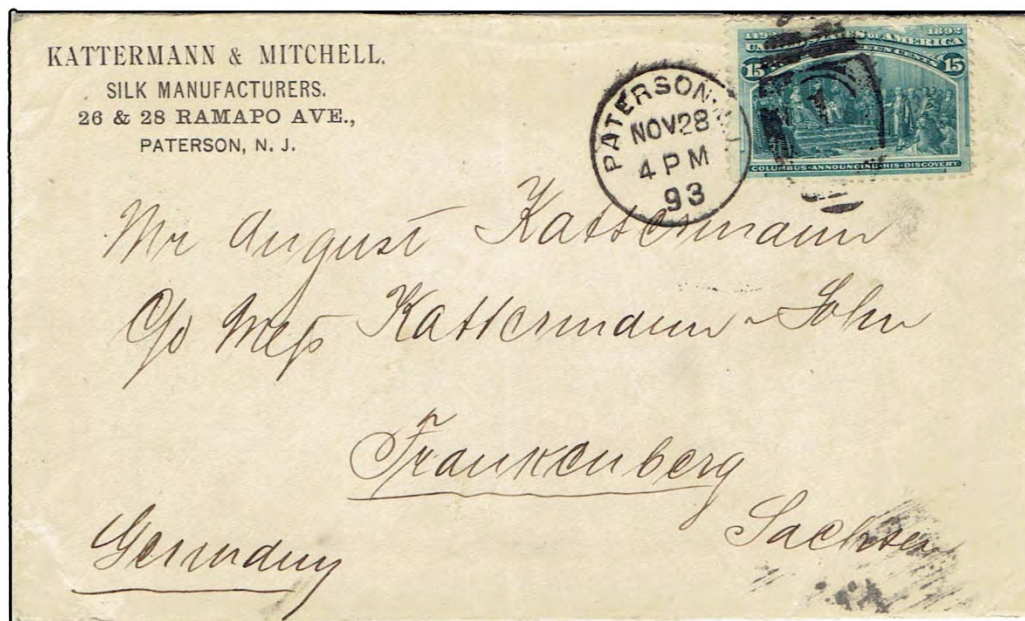 KATTERMANN & MITCHELL,
SILK MANUFACTURERS.
26 & 28 RAMAPO AVE.,
PATERSON, N. J.
PATERSON, N.J.
NOV 28
4 PM
93
1492 1892
UNITED STATES OF AMERICA
15 FIFTEEN CENTS 15
COLUMBUS ANNOUNCING HIS DISCOVERY
Mr August Kattermann
c/o Mess Kattermann & Sohn
Frankenberg
Sachsen
Germany